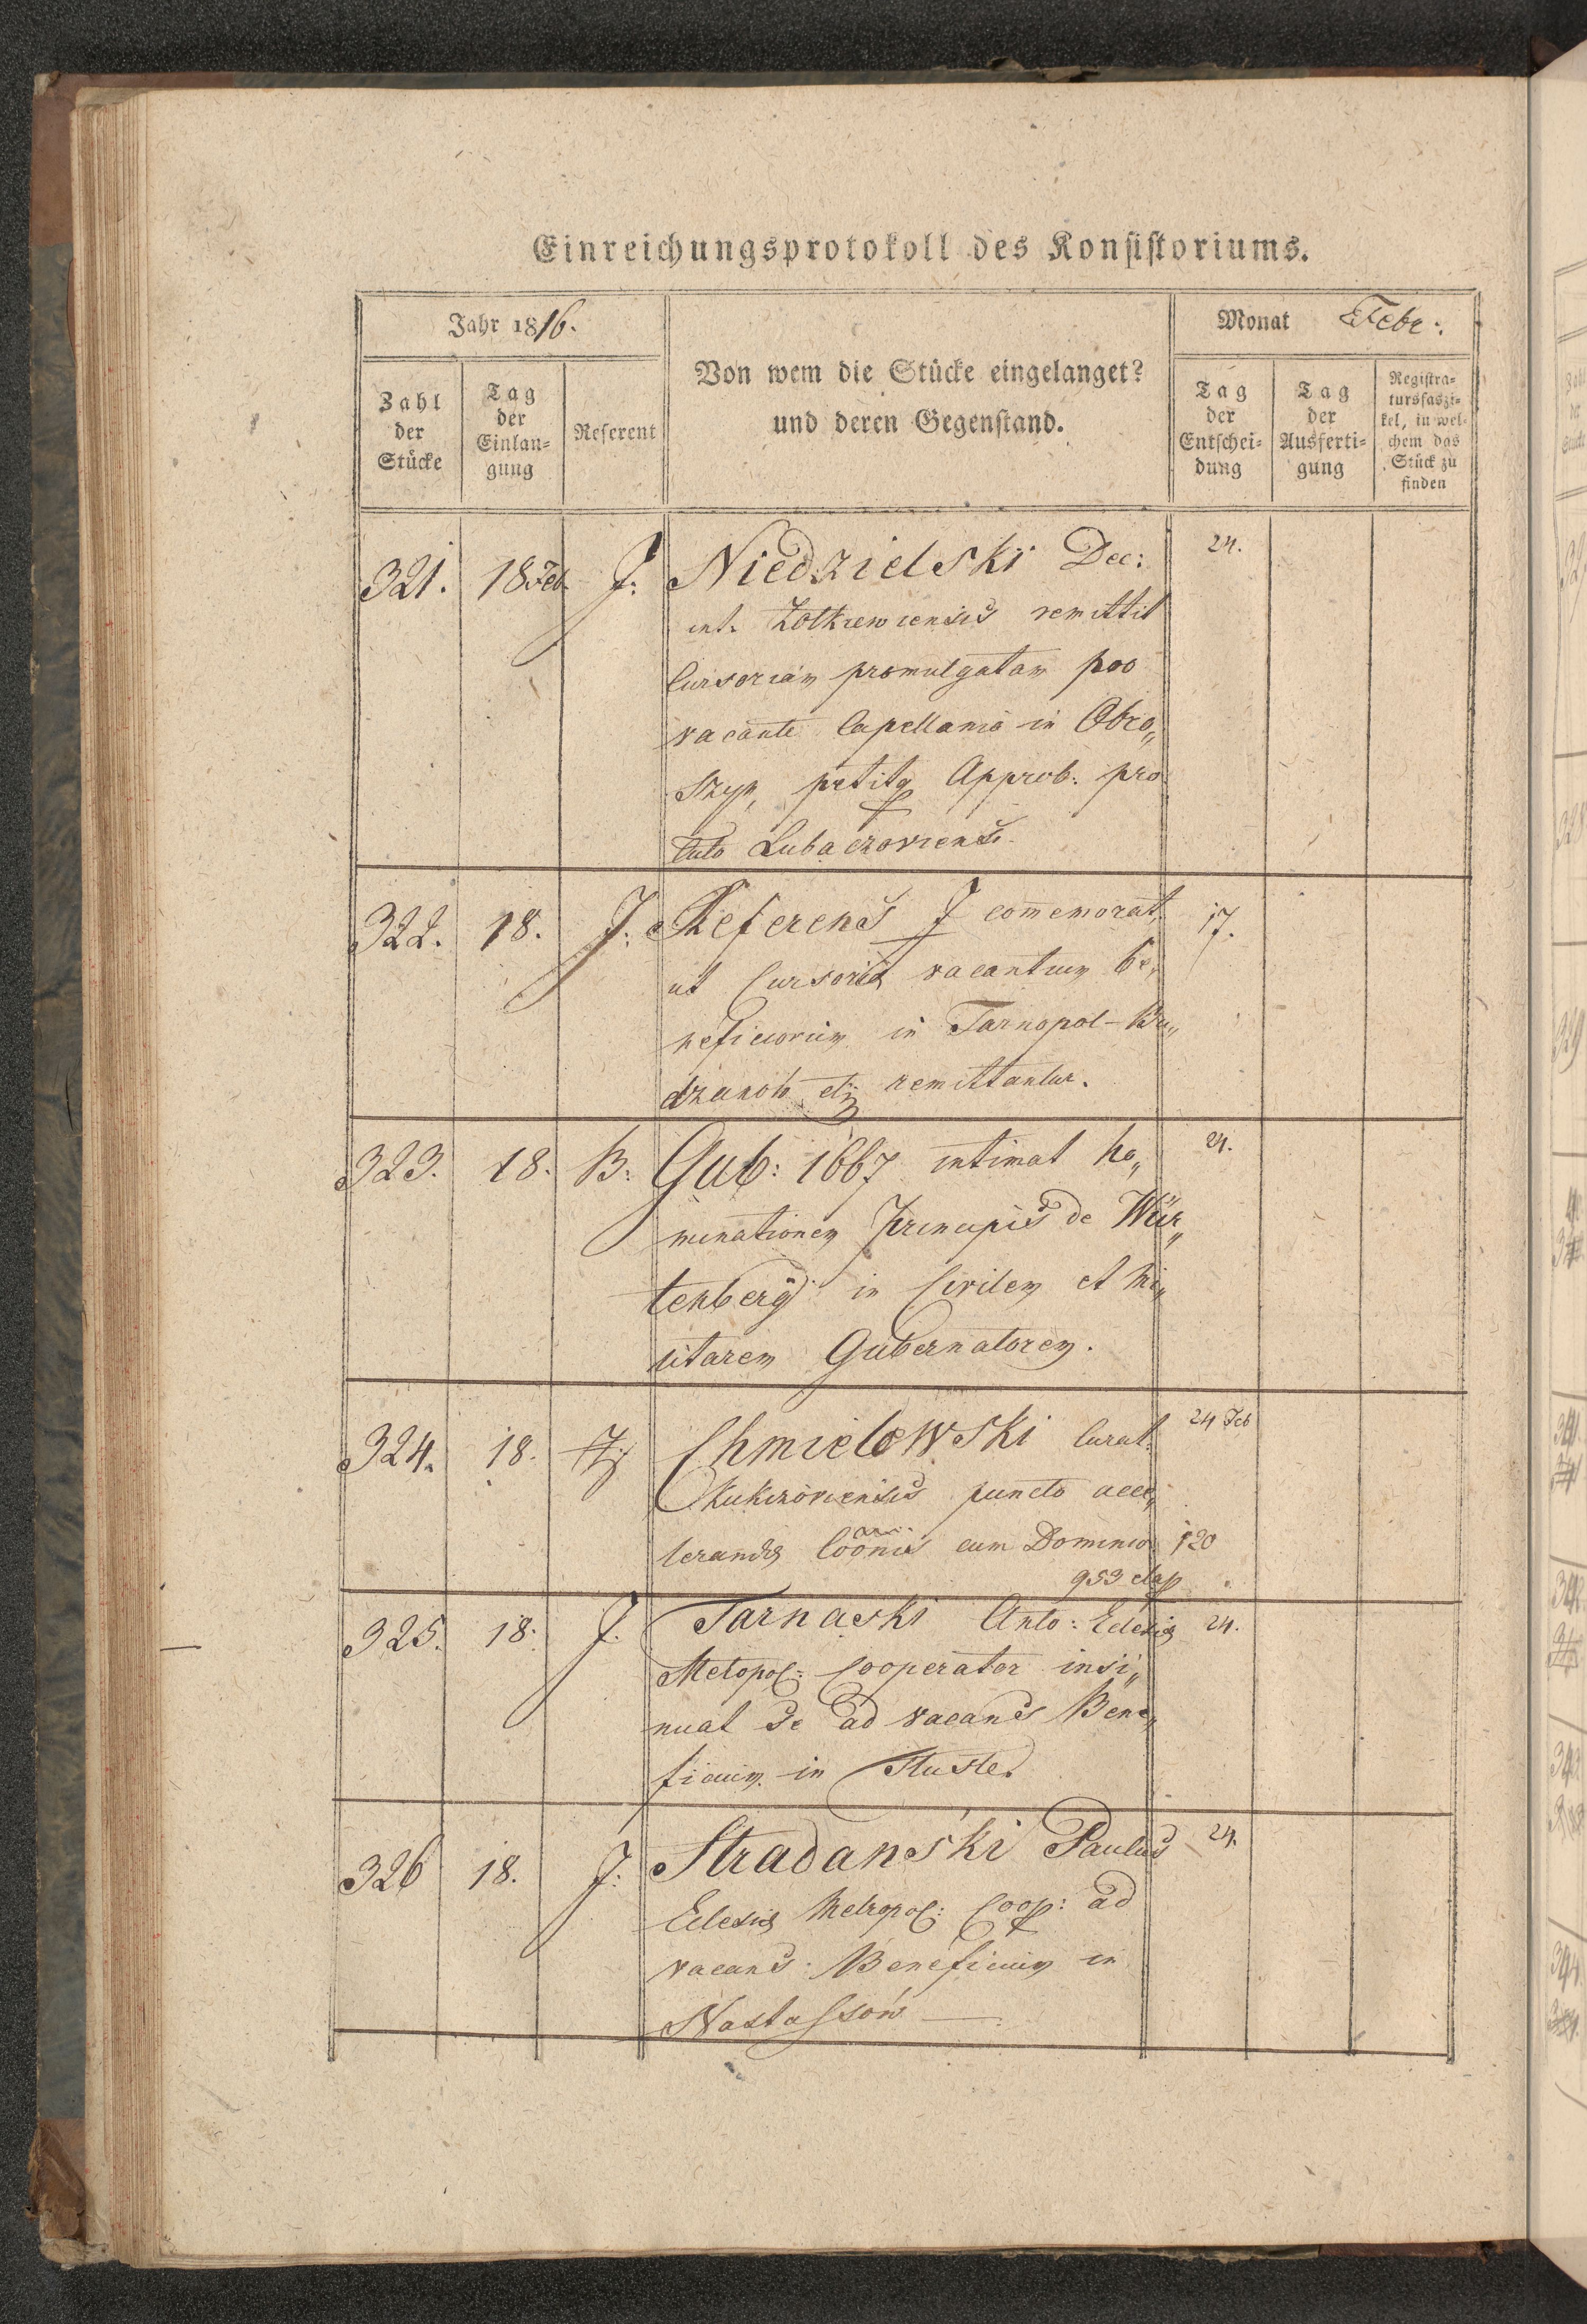 Einreichungsprotokoll des Konsistoriums.
Jahr 1816.
Monat Febr:
Zahl der Stücke
Tag der Einlan= gung
Referent
Von wem die Stücke eingelanget?
und deren Gegenstand.
Tag der Entschei= dung
Tag der Ausferti= gung
Registra= tursfaszi= kel, in wel= chem das Stück zu finden
321. 18 Feb. J: Niedzielski Dec: 24.
int. Zolkiewiensis remittit
Cursoriam promulgatam pro
vacante Capellania in Obro„
szyn, petitq Approb: pro
Lubaczoviensi
322. 18. J: Referens J commemorat, 17.
ut Cursoria vacantium be„
neficiorum in Tarnopol - Bu„
dzanow remittantur.
323. 18. B: Gub: 1667 intimat no„ 24.
minationem Principis de Wür„
tenberg in Civilem et Mi„
litarem Gubernatorem.
324. 18. Chmielowski Curat: 24 Feb
Kukizoviensis puncto acce„
lerandæ cum Dominio 120
953
325. 18. J. Tarnaski Anto: Eclesiæ 24.
Metopol: Cooperator insi„
nuat se ad vacans Bene„
ficium in Tluste.
326 18. J: Stradański Paulus 24.
Eclesiæ Metropol: Coop: ad
vacans Beneficium in
Nastassow —